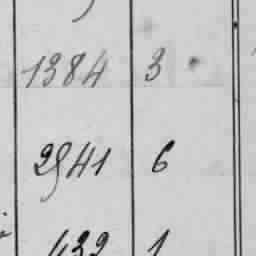 1384 3
2941 6
432 1